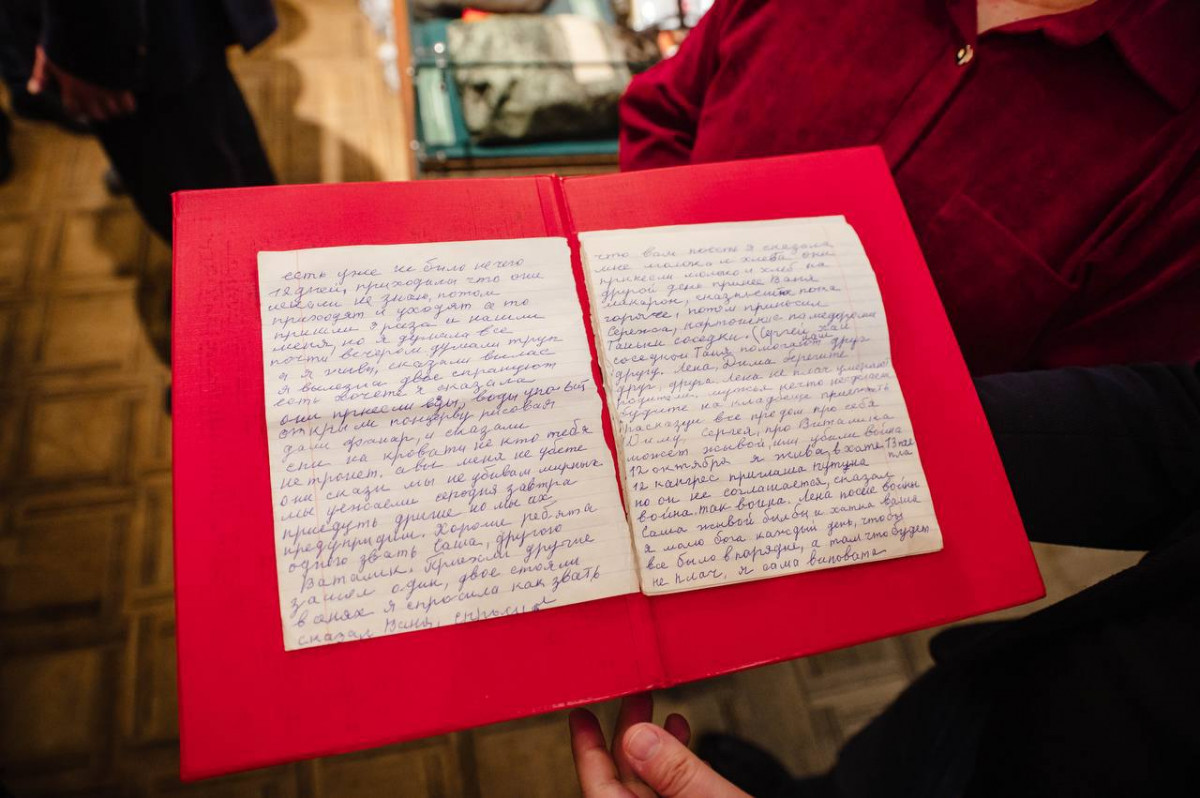 есть уже не было нечего
12 дней, приходали что они
не знаю, потом
приходят и уходят а то
пришли 3 раза и нашли
меня, но я думала все
почти вечером думали труп
а я жива, сказали вылас
я вылезла двое спрашуют
есть хочете я сказала
они принесли еды, воды упо
открыли консерву рисовая
дали фонарь, и сказали
спи на кровати не кто тебя
не тронет. а вы меня не убьете
они скази мы не убивам мирных
мы уежаем сегодня завтра
приедуть другие но мы их
предупридим. Хороше ребята
одного звать Саша, другого
Виталик. Приехали другие
зашел один, двое стояли
в окнях я спросила как звать
сказал Ваня, спросил
что вам поесть я сказала
мне молока и хлеба они
принесли молоко и хлеб на
другой день принес Ваня
макарон, сказ пока
горячее, потом приносил
Сережа, картошкие помедороми
Таньки соседки. (Сергей Хай
соседкой Таня помогают друг
другу. Лена, Дима берегите
друг, друга. Лена не плач умерают
родители, мужья некто
будите на кладбище
расказуй все про себя
Диму, Сергея, про Виталика
может жывой, или убили война
12 октября я жива, в хате 13
12 кангрес приглаша путуна
но он не соглашается, сказал
война так война. Лена после войны
Сама живой былбы и хатна
я молю бога каждый день, чтобы
все было в парядке, а там что будет
не плач, я сама виповата